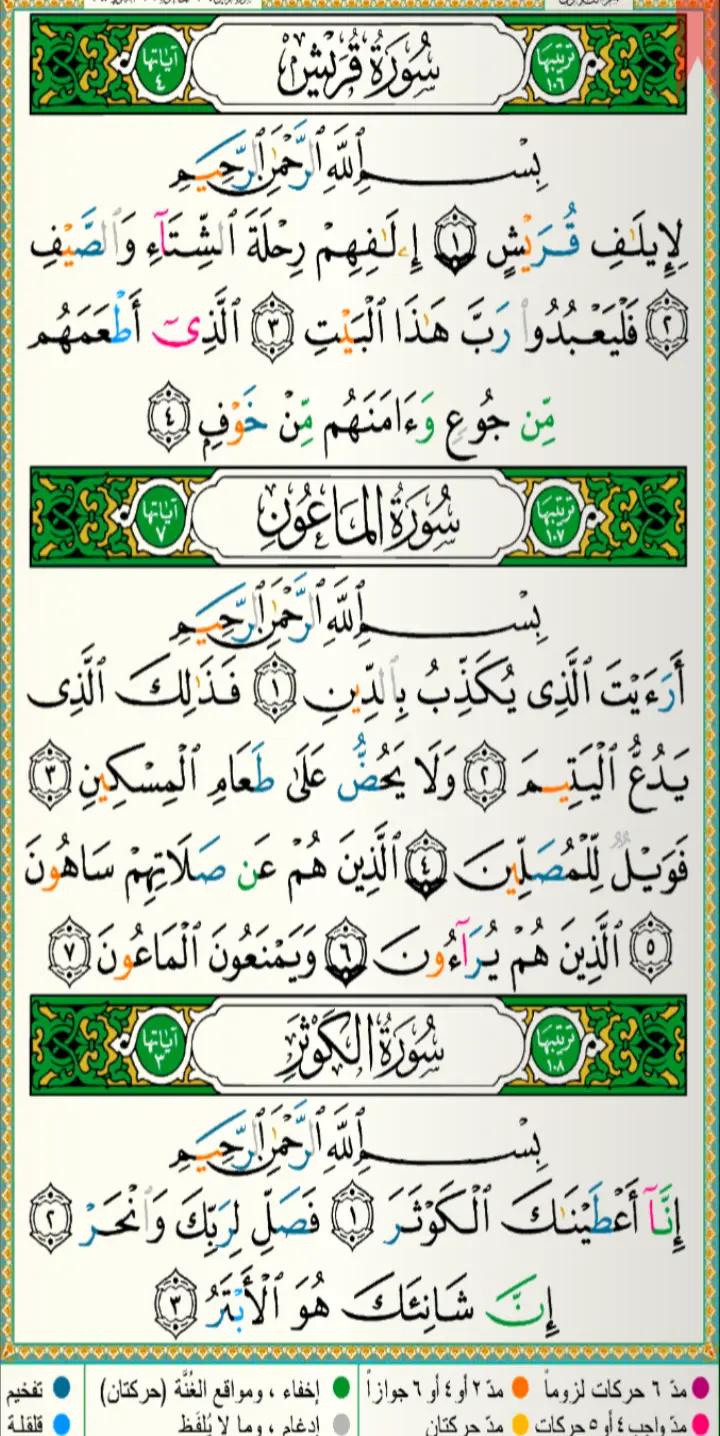 ترتيبها ١٠٦ سُورَةُ قُرَيْشٍ آياتها ٤
بِسْمِ ٱللَّهِ ٱلرَّحْمَٰنِ ٱلرَّحِيمِ
لِإِيلَٰفِ قُرَيْشٍ ١ إِۦلَٰفِهِمْ رِحْلَةَ ٱلشِّتَآءِ وَٱلصَّيْفِ
٢ فَلْيَعْبُدُوا۟ رَبَّ هَٰذَا ٱلْبَيْتِ ٣ ٱلَّذِىٓ أَطْعَمَهُم
مِّن جُوعٍ وَءَامَنَهُم مِّنْ خَوْفٍۭ ٤
ترتيبها ١٠٧ سُورَةُ المَاعُونِ آياتها ٧
بِسْمِ ٱللَّهِ ٱلرَّحْمَٰنِ ٱلرَّحِيمِ
أَرَءَيْتَ ٱلَّذِى يُكَذِّبُ بِٱلدِّينِ ١ فَذَٰلِكَ ٱلَّذِى
يَدُعُّ ٱلْيَتِيمَ ٢ وَلَا يَحُضُّ عَلَىٰ طَعَامِ ٱلْمِسْكِينِ ٣
فَوَيْلٌ لِّلْمُصَلِّينَ ٤ ٱلَّذِينَ هُمْ عَن صَلَاتِهِمْ سَاهُونَ
٥ ٱلَّذِينَ هُمْ يُرَآءُونَ ٦ وَيَمْنَعُونَ ٱلْمَاعُونَ ٧
ترتيبها ١٠٨ سُورَةُ الكَوْثَرِ آياتها ٣
بِسْمِ ٱللَّهِ ٱلرَّحْمَٰنِ ٱلرَّحِيمِ
إِنَّآ أَعْطَيْنَٰكَ ٱلْكَوْثَرَ ١ فَصَلِّ لِرَبِّكَ وَٱنْحَرْ ٢
إِنَّ شَانِئَكَ هُوَ ٱلْأَبْتَرُ ٣
مدّ ٦ حركات لزوماً مدّ ٢ أو ٤ أو ٦ جوازاً إخفاء ، ومواقع الغُنَّة (حركتان) تفخيم
مدّ واجب ٤ أو ٥ حركات مدّ حركتان إدغام ، وما لا يُلفَظ قلقلة